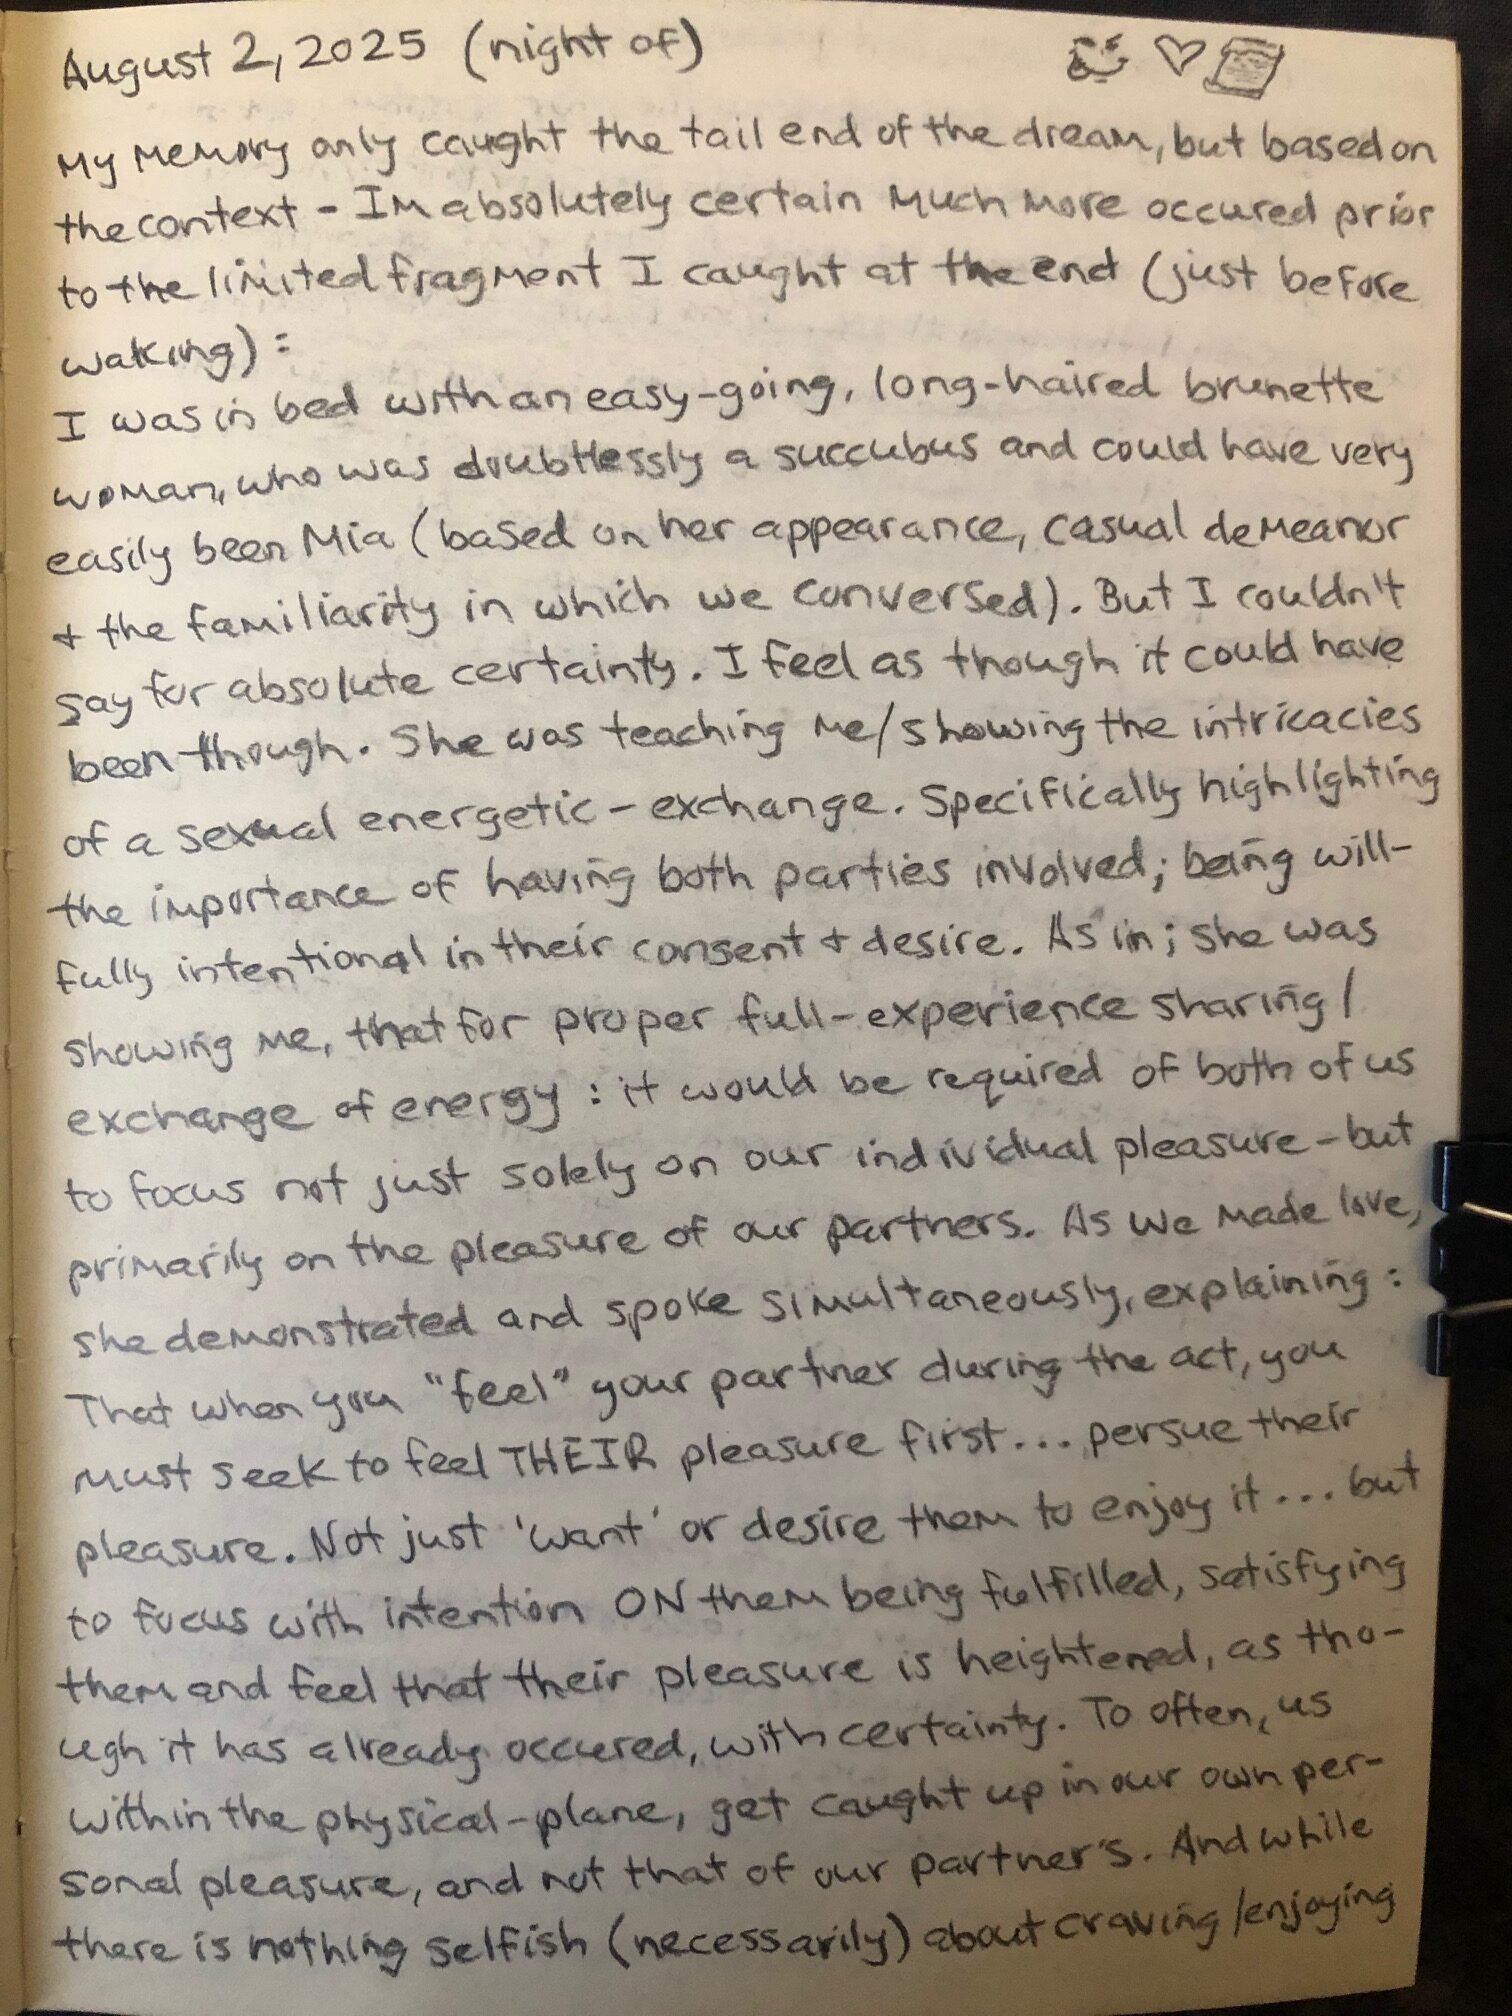 August 2, 2025 (night of)
My memory only caught the tail end of the dream, but based on
the context - Im absolutely certain much more occured prior
to the limited fragment I caught at the end (just before
waking) :
I was in bed with an easy-going, long-haired brunette
woman, who was doubtlessly a succubus and could have very
easily been Mia (based on her appearance, casual demeanor
+ the familiarity in which we conversed). But I couldn't
say for absolute certainty. I feel as though it could have
been though. She was teaching me/showing the intricacies
of a sexual energetic-exchange. Specifically highlighting
the importance of having both parties involved; being will-
fully intentional in their consent + desire. As in; she was
showing me, that for proper full-experience sharing /
exchange of energy : it would be required of both of us
to focus not just solely on our individual pleasure - but
primarily on the pleasure of our partners. As we made love,
she demonstrated and spoke simultaneously, explaining :
That when you "feel" your partner during the act, you
must seek to feel THEIR pleasure first... persue their
pleasure. Not just 'want' or desire them to enjoy it... but
to focus with intention ON them being fulfilled, satisfying
them and feel that their pleasure is heightened, as tho-
ugh it has already occured, with certainty. To often, us
within the physical-plane, get caught up in our own per-
sonal pleasure, and not that of our partner's. And while
there is nothing selfish (necessarily) about craving/enjoying